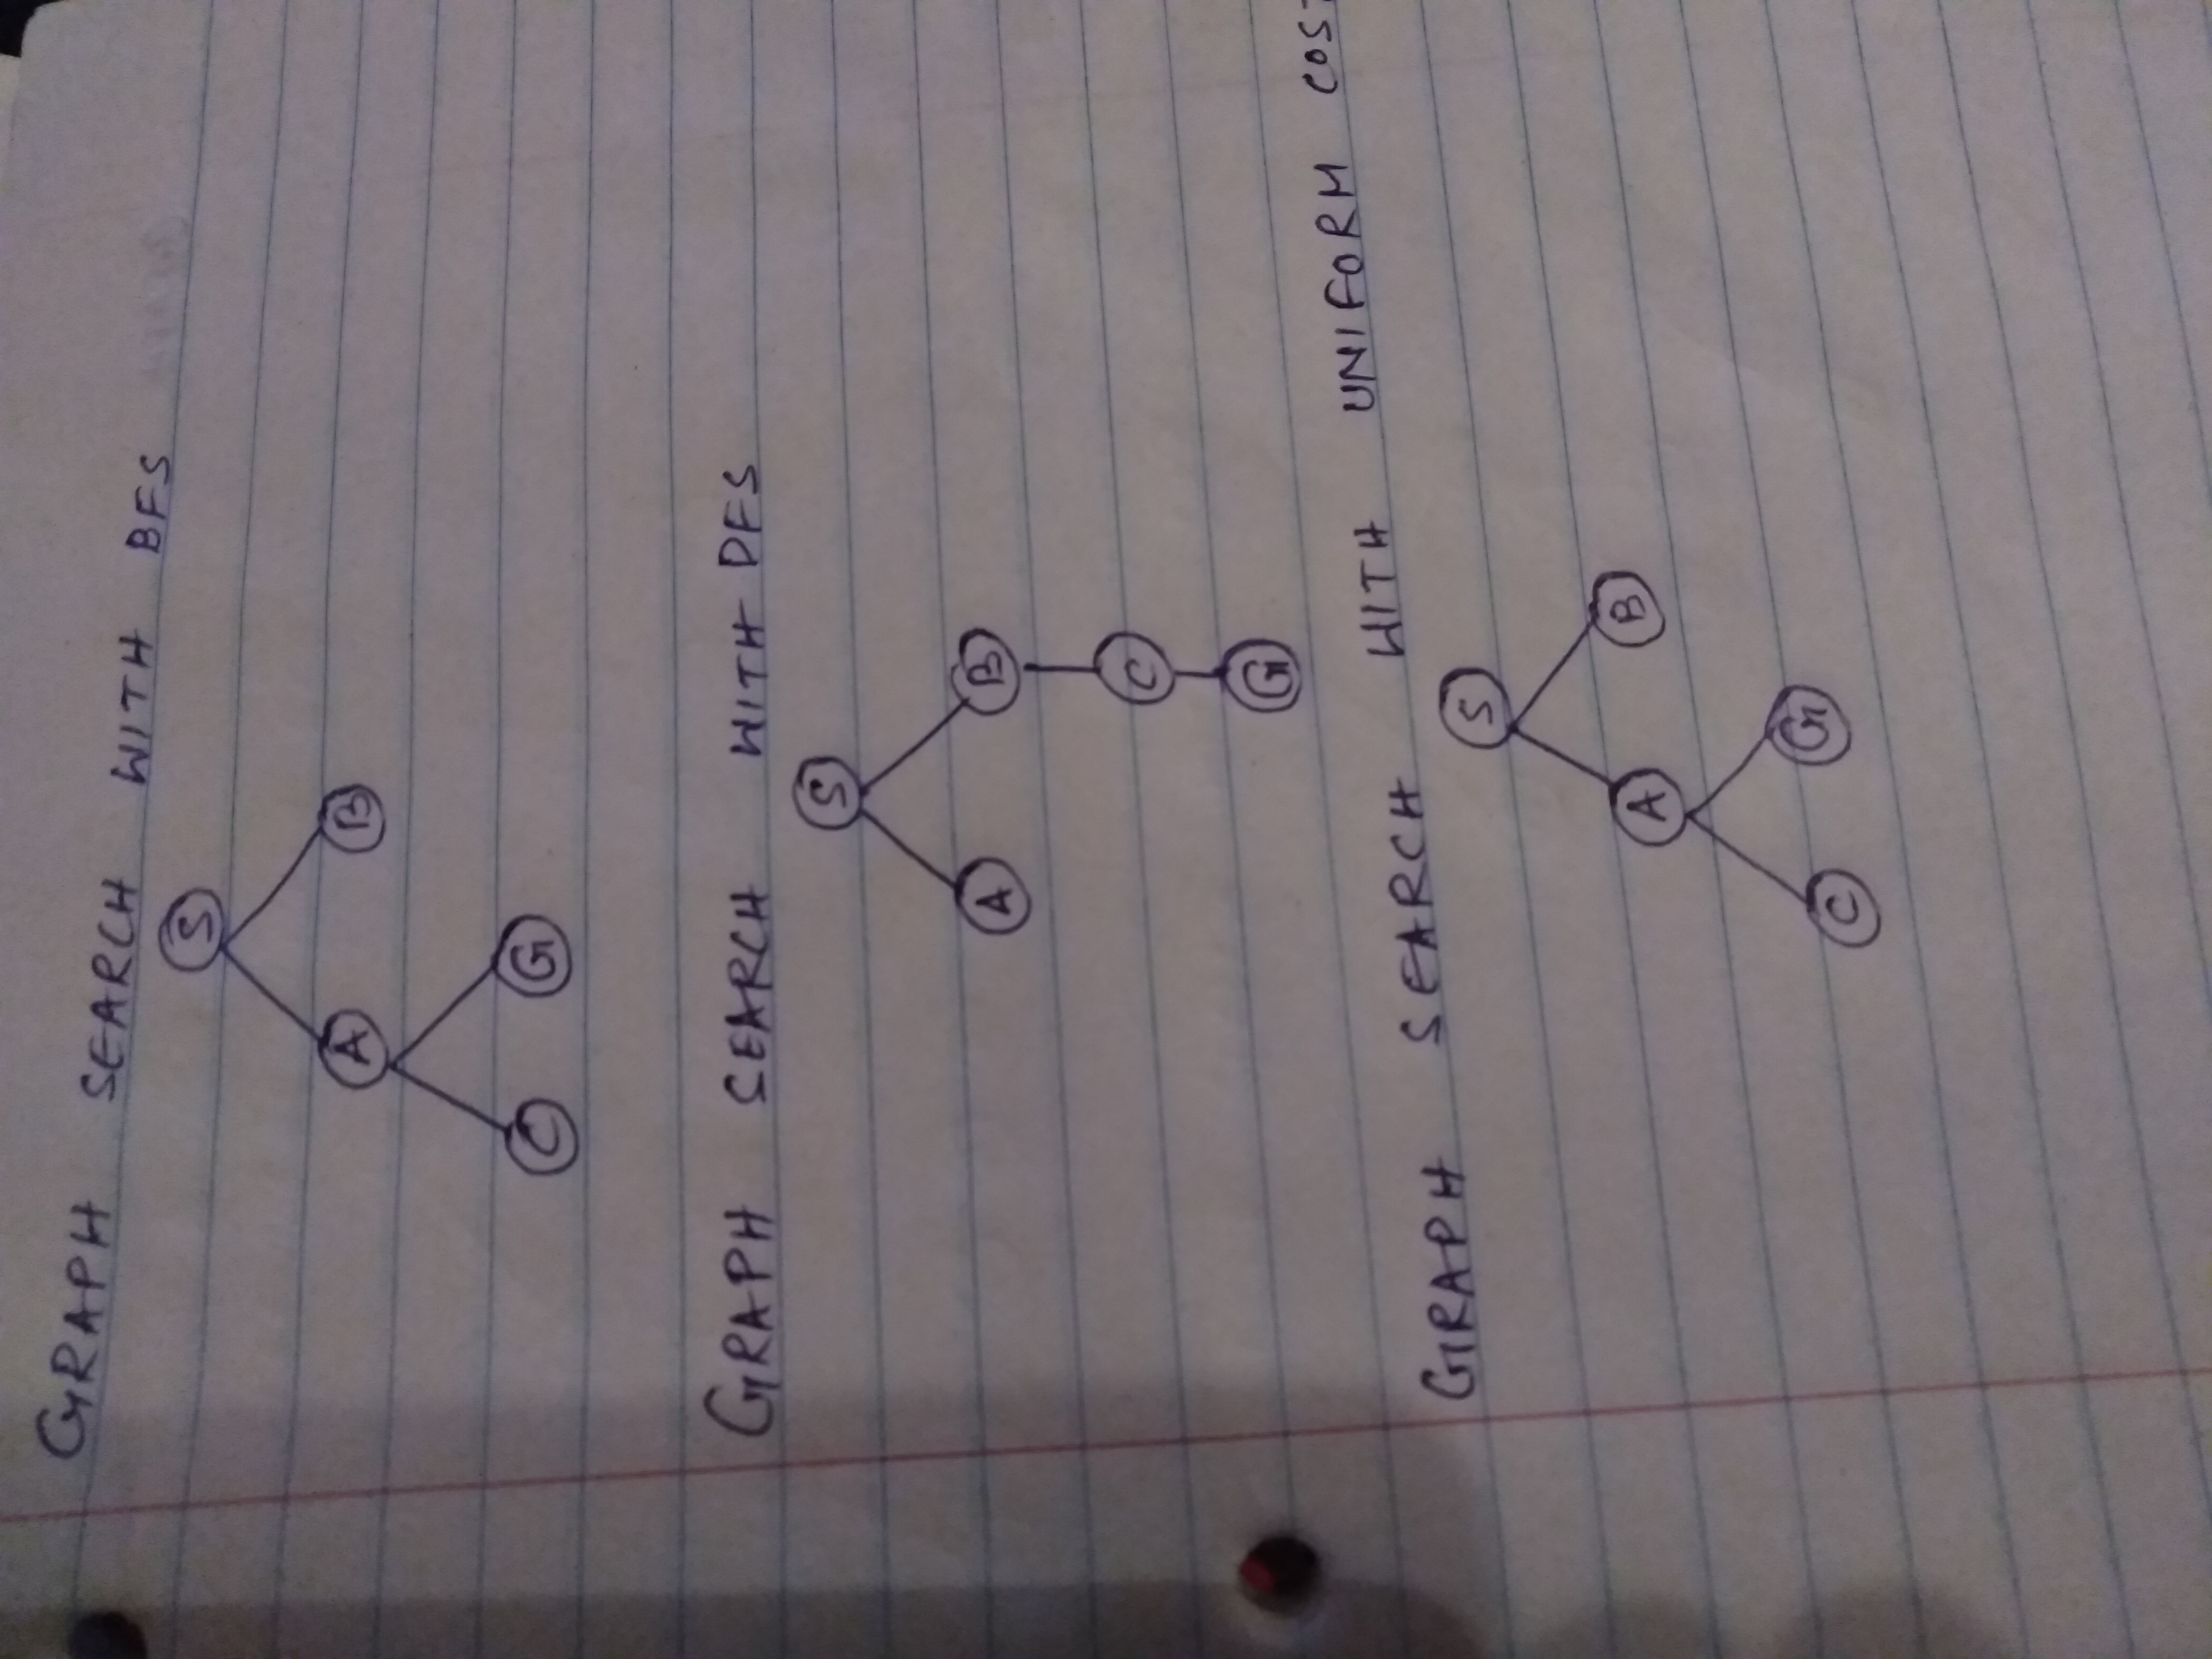 GRAPH SEARCH WITH BFS
S
A B
C G
GRAPH SEARCH WITH DFS
S
A B
C
G
GRAPH SEARCH WITH UNIFORM COST
S
A B
C G